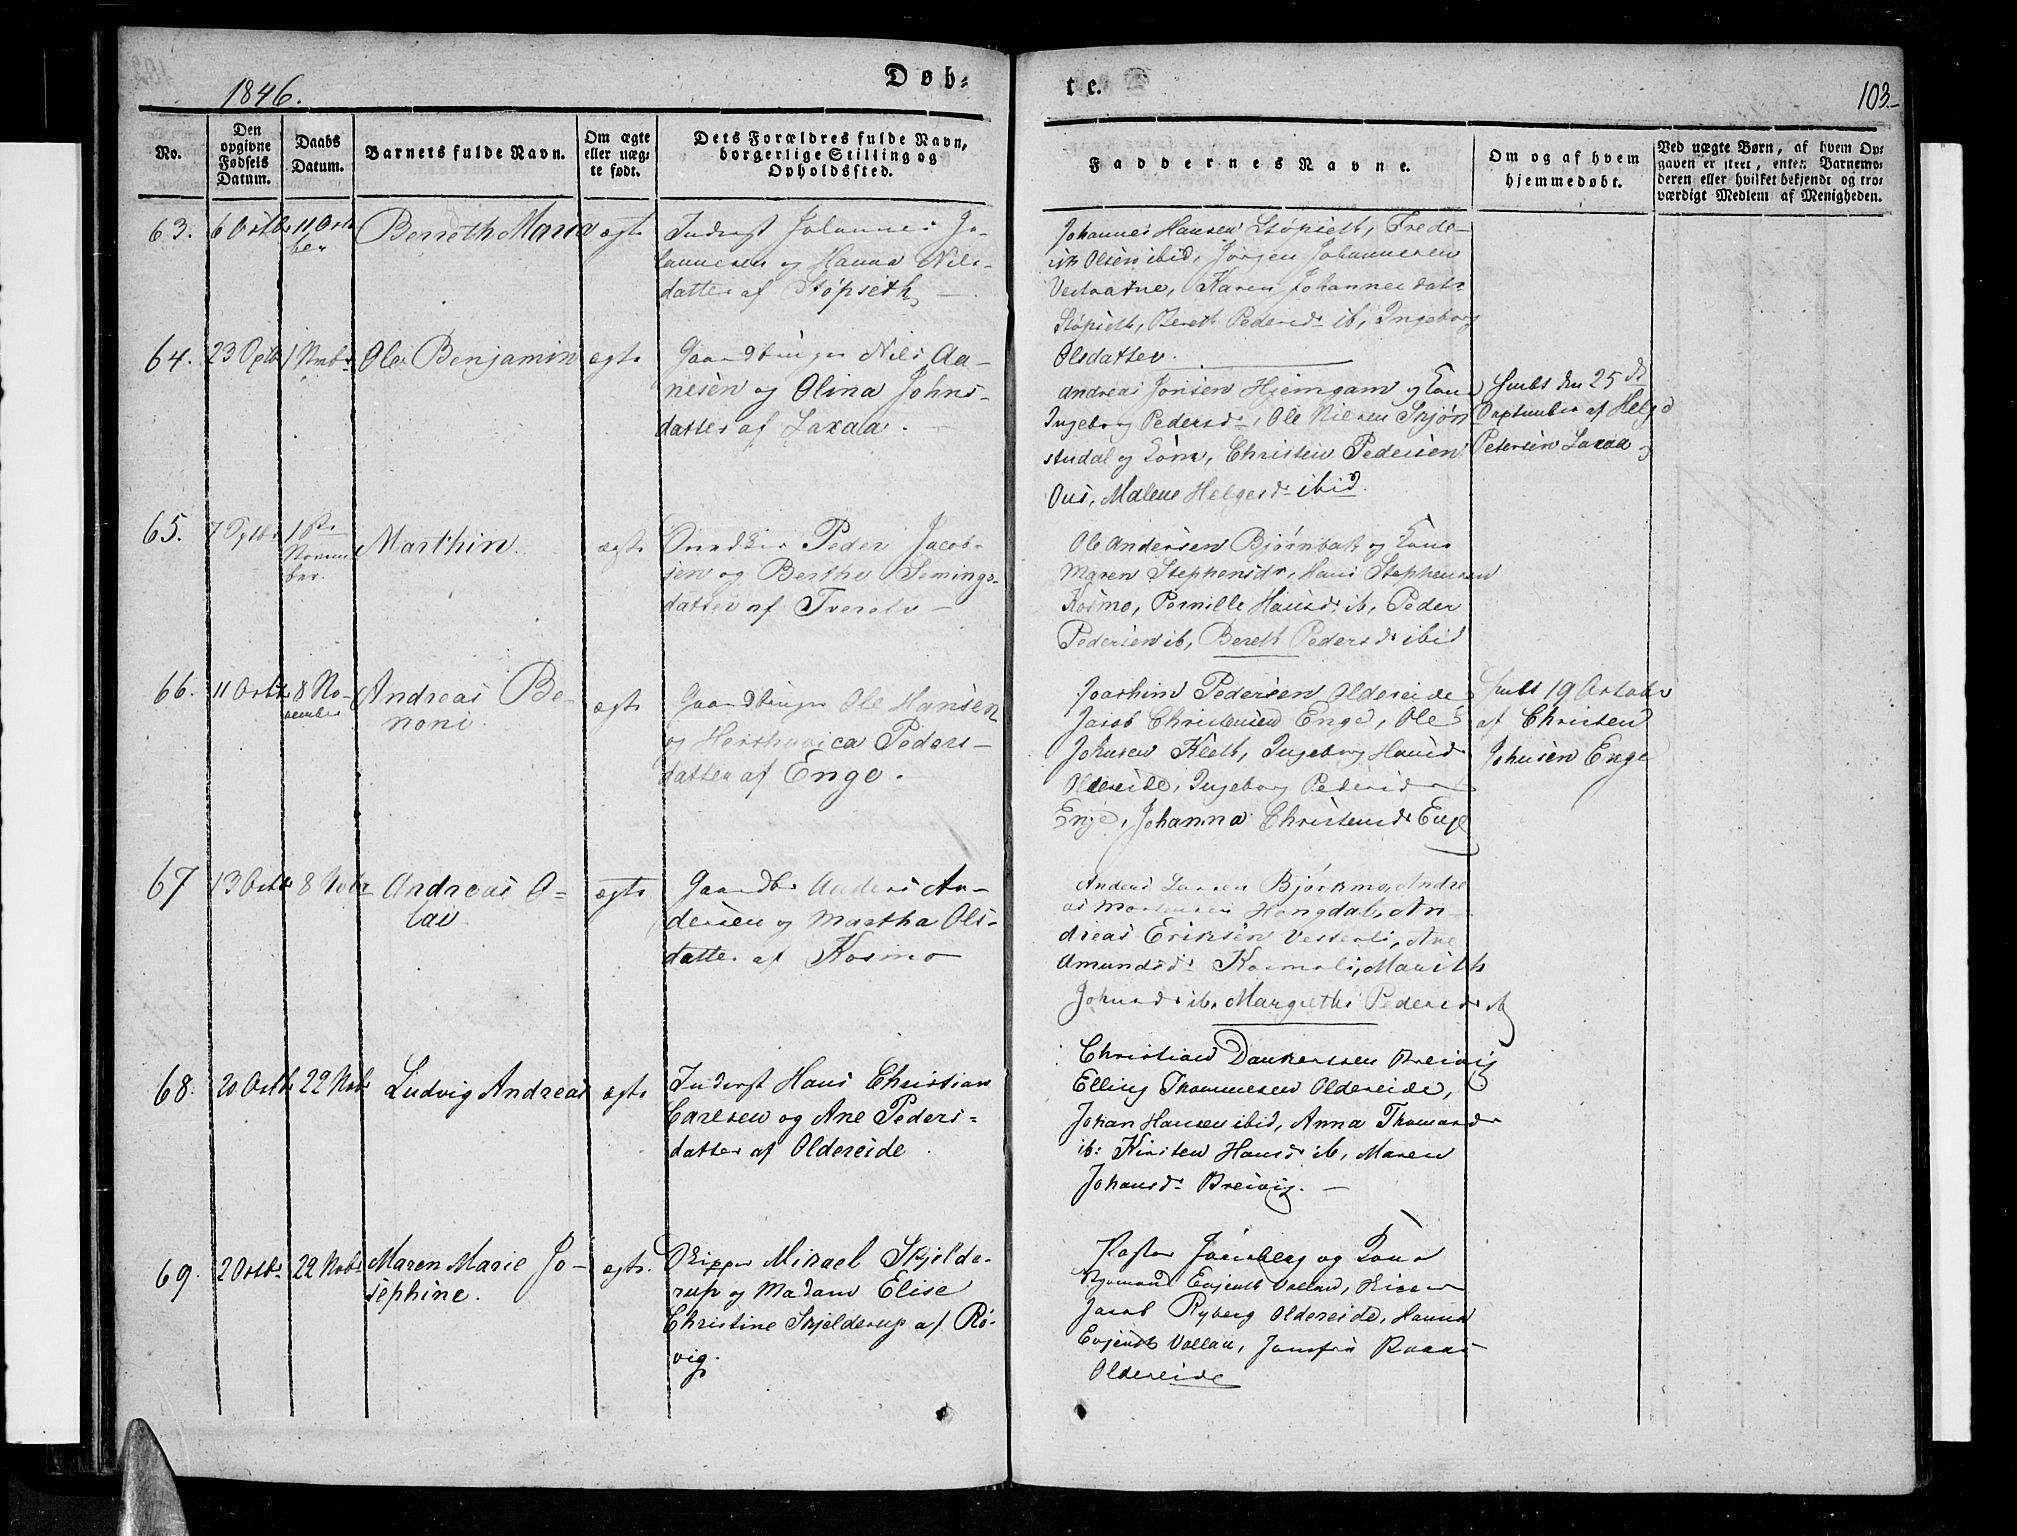 1846.
Døb-
te.
103.
No.
Den opgivne Fødsels Datum.
Daabs Datum.
Barnets fulde Navn.
Om ægte eller uægte født.
Dets Forældres fulde Navn, borgerlige Stilling og Opholdssted.
Faddernes Navne.
Om og af hvem hjemmedøbt.
Ved uægte Børn, af hvem Opgaven er skeet, enten Barnemoderen eller hvilket bekjendt og troværdigt Medlem af Menigheden.
63.
6 Octbr
11 Octo
ber
Bereth Maria
ægte
Inderst Johannes Jo-
hannesen og Hanna Nils-
datter af Støpseth
Johannes Hansen Støpseth, Frede-
rik Olsen ibid, Jørgen Johannesen
Vestvatne, Karen Johannesdatr
Støpseth, Bereth Pedersdr ib, Ingeborg
Olsdatter.
64.
1 Novbr
Ole Benjamin
ægte
Gaardbruger Nils Aa-
nesen og Olina Johns-
datter af Laxaa.
Andreas Jonsen Hjemgam og Kone
Ingeborg Pedersdr, Ole Nilsen Skjøn
studal og Kone, Christen Pedersen
Ous, Malene Helgesdr ibid.
den 25de
September af Helge
Petersen Laxaa
65.
1ste
Novem
ber
Marthin
ægte
Peder Jacob-
sen og Berthe Semings-
datter af Tverelv
Ole Andersen Bjørnbak og Kone
Maren Stephensdr, Hans Stephensen
Kosmo, Pernille Hansdr ib, Peder
Pedersen ib, Bereth Pedersdr ibid
66.
11 Octbr
8 No-
vember
Andreas Be-
noni
ægte
Gaardbruger Ole Hansen
og Peders-
datter af Enge.
Joachim Pedersen Oldereide
Jacob Christensen Enge, Ole
Johnsen Kleth, Ingeborg Hansdr
Oldereide, Ingeborg Pedersdr
Enge, Johanna Christensdr Enge
19 October
af Christen
Johnsen Enge
67
13 Octbr
8 Nobr
Andreas O-
lai
ægte
Gaardbr Anders An-
dersen og Martha Ols-
datter af Kosmo
Anders Larsen Bjørkmo, Andre
as Mortensen Hongdal, An-
dreas Eriksen Vesterli, Ane
Amundsdr Kosmoli, Marith
Johnsdr ib, Margrethe Pedersdr ib
68.
20 Octbr
22 Nobr
Ludvig Andreas
ægte
Inderst Hans Christian
Carlsen og Ane Peders-
datter af Oldereide.
Christian Dankertsen Breivig
Elling Thommesen Oldereide,
Johan Hansen ibid, Anna Thomasdr
ib: Kirsten Hansdr ib, Maren
Johansdr Breivig.
69.
2 Octbr
22 Nobr
Maren Marie Jo-
sephine.
ægte.
Skipper Mikael Skjelde-
rup og Madam Elise
Christine Skjelderup af Rø-
vig.
Pastor og Kone
Evjenth Vollan,
Jacob Ryberg Oldereide, Hanna
Evjenth Vollan, Jomfru
Oldereide